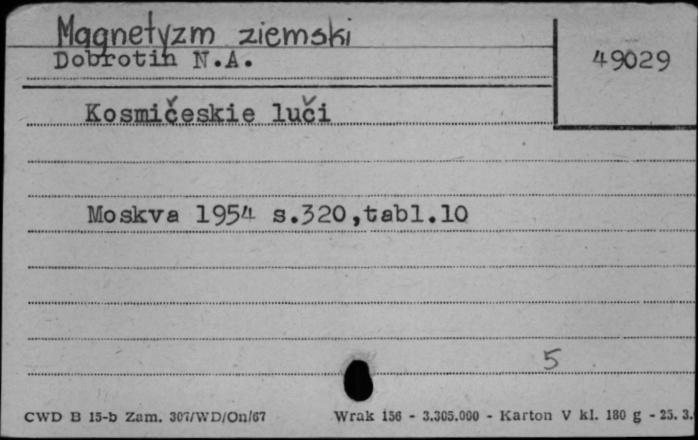 Magnetyzm ziemski
Dobrotin N.A.
49029
Kosmičeskie luči
Moskva 1954 s.320,tabl.10
5
CWD B 15-b Zam. 307/WD/On/67 Wrak 156 - 3.305.000 - Karton V kl. 180 g - 25. 3.